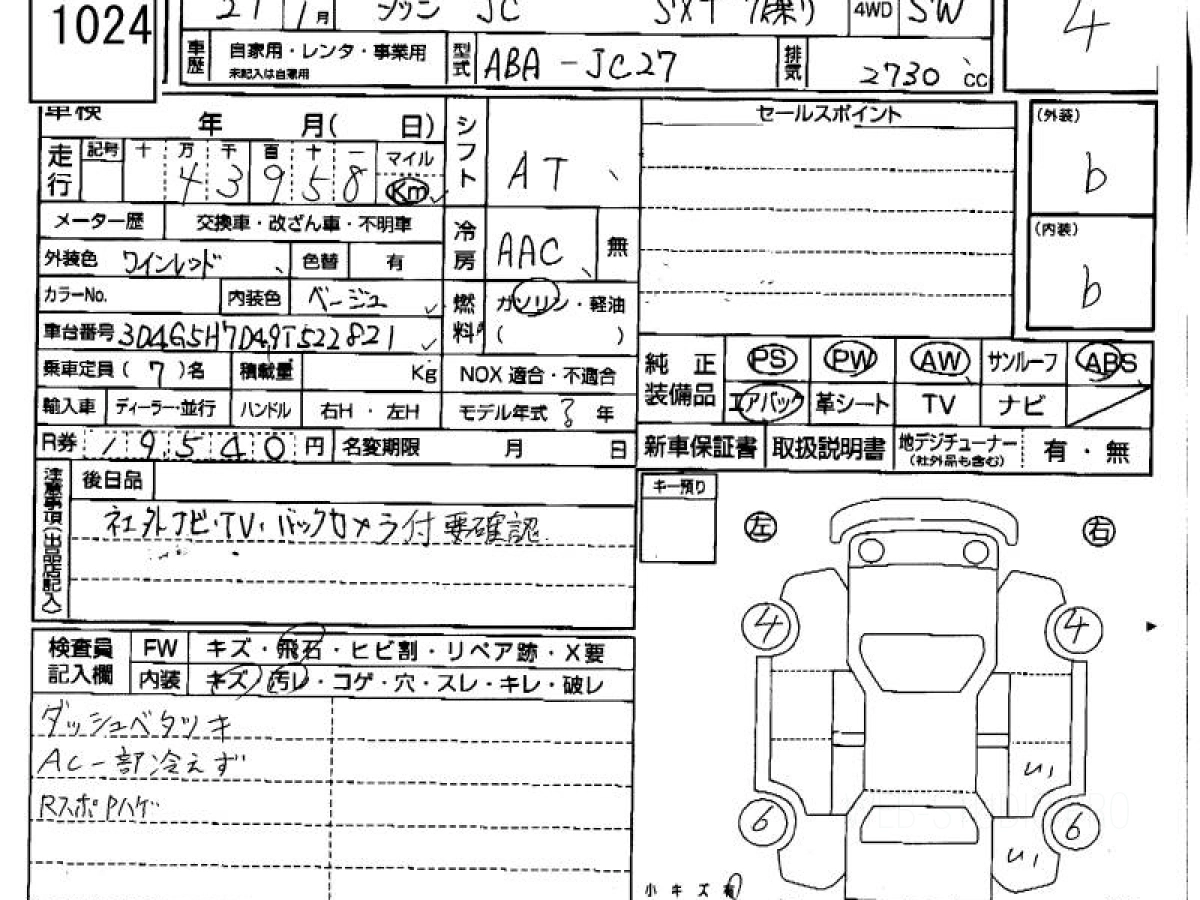 1024
21 1月 JC SXT 7人乗り 4WD SW
4
車歴 自家用・レンタ・事業用 未記入は自家用 型式 ABA-JC27 排気 2730 cc
車検 年 月( 日)
走行 記号 十 万 千 百 十 一 マイル
4 3 9 5 8 Km
シフト AT
セールスポイント
(外装) b
メーター歴 交換車・改ざん車・不明車
外装色 ワインレッド 色替 有
冷房 AAC 無
(内装) b
カラーNo. 内装色 ベージュ
燃料 ガソリン・軽油
( )
車台番号 3D4G5H7D49T522821
乗車定員 ( 7 )名 積載量 Kg NOX 適合・不適合
輸入車 ディーラー・並行 ハンドル 右H・左H モデル年式 年
R券 19540 円 名変期限 月 日
純正装備品 PS PW AW サンルーフ ABS
エアバック 革シート TV ナビ
新車保証書 取扱説明書 地デジチューナー (社外品も含む) 有・無
注意事項(出品店記入) 後日品
社外ナビ・TV・バックカメラ付 要確認
キー預り
左 右
4 4
6 6
検査員記入欄 FW キズ・飛石・ヒビ割・リペア跡・X要
内装 キズ・汚レ・コゲ・穴・スレ・キレ・破レ
ダッシュベタツキ
AC一部冷えず
RスポPハゲ
U1
U1
小キズ有